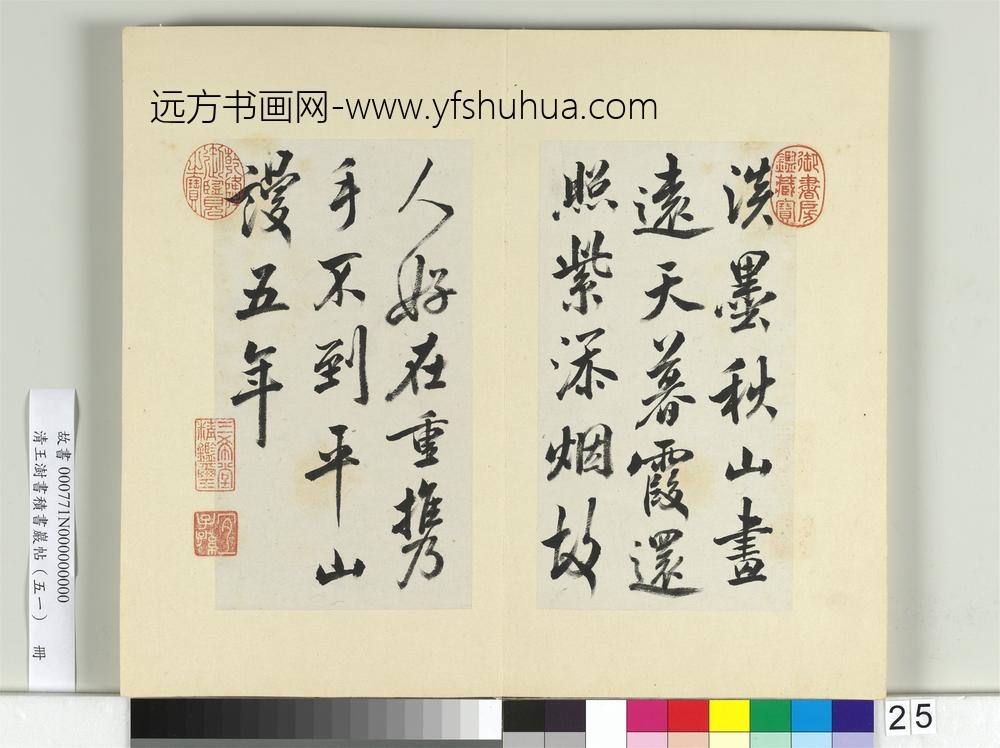 远方书画网-www.yfshuhua.com
淡墨秋山畫
遠天暮霞還
照紫添烟故
人好在重攜
手不到平山
謾五年
御書房鑑藏寶
乾隆御覽之寶
三希堂精鑑璽
宜子孫
故書 000771N000000000
清王澍書積書巖帖（五一） 冊
25